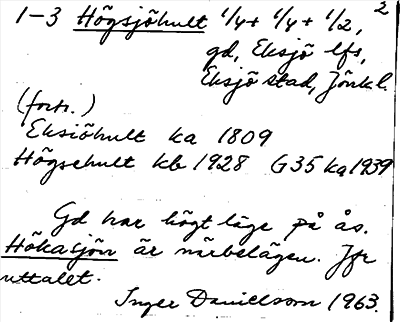 2
1-3 Högsjöhult 1/4 + 1/4 + 1/2,
gd, Eksjö lfs,
Eksjö stad, Jönk l.
(forts.)
Eksiöhult ka 1809
Högsehult kb 1928 G35 ka 1939
Gd har högt läge på ås.
Hökasjön är närbelägen. Jfr
uttalet.
Inger Danielsson 1963.